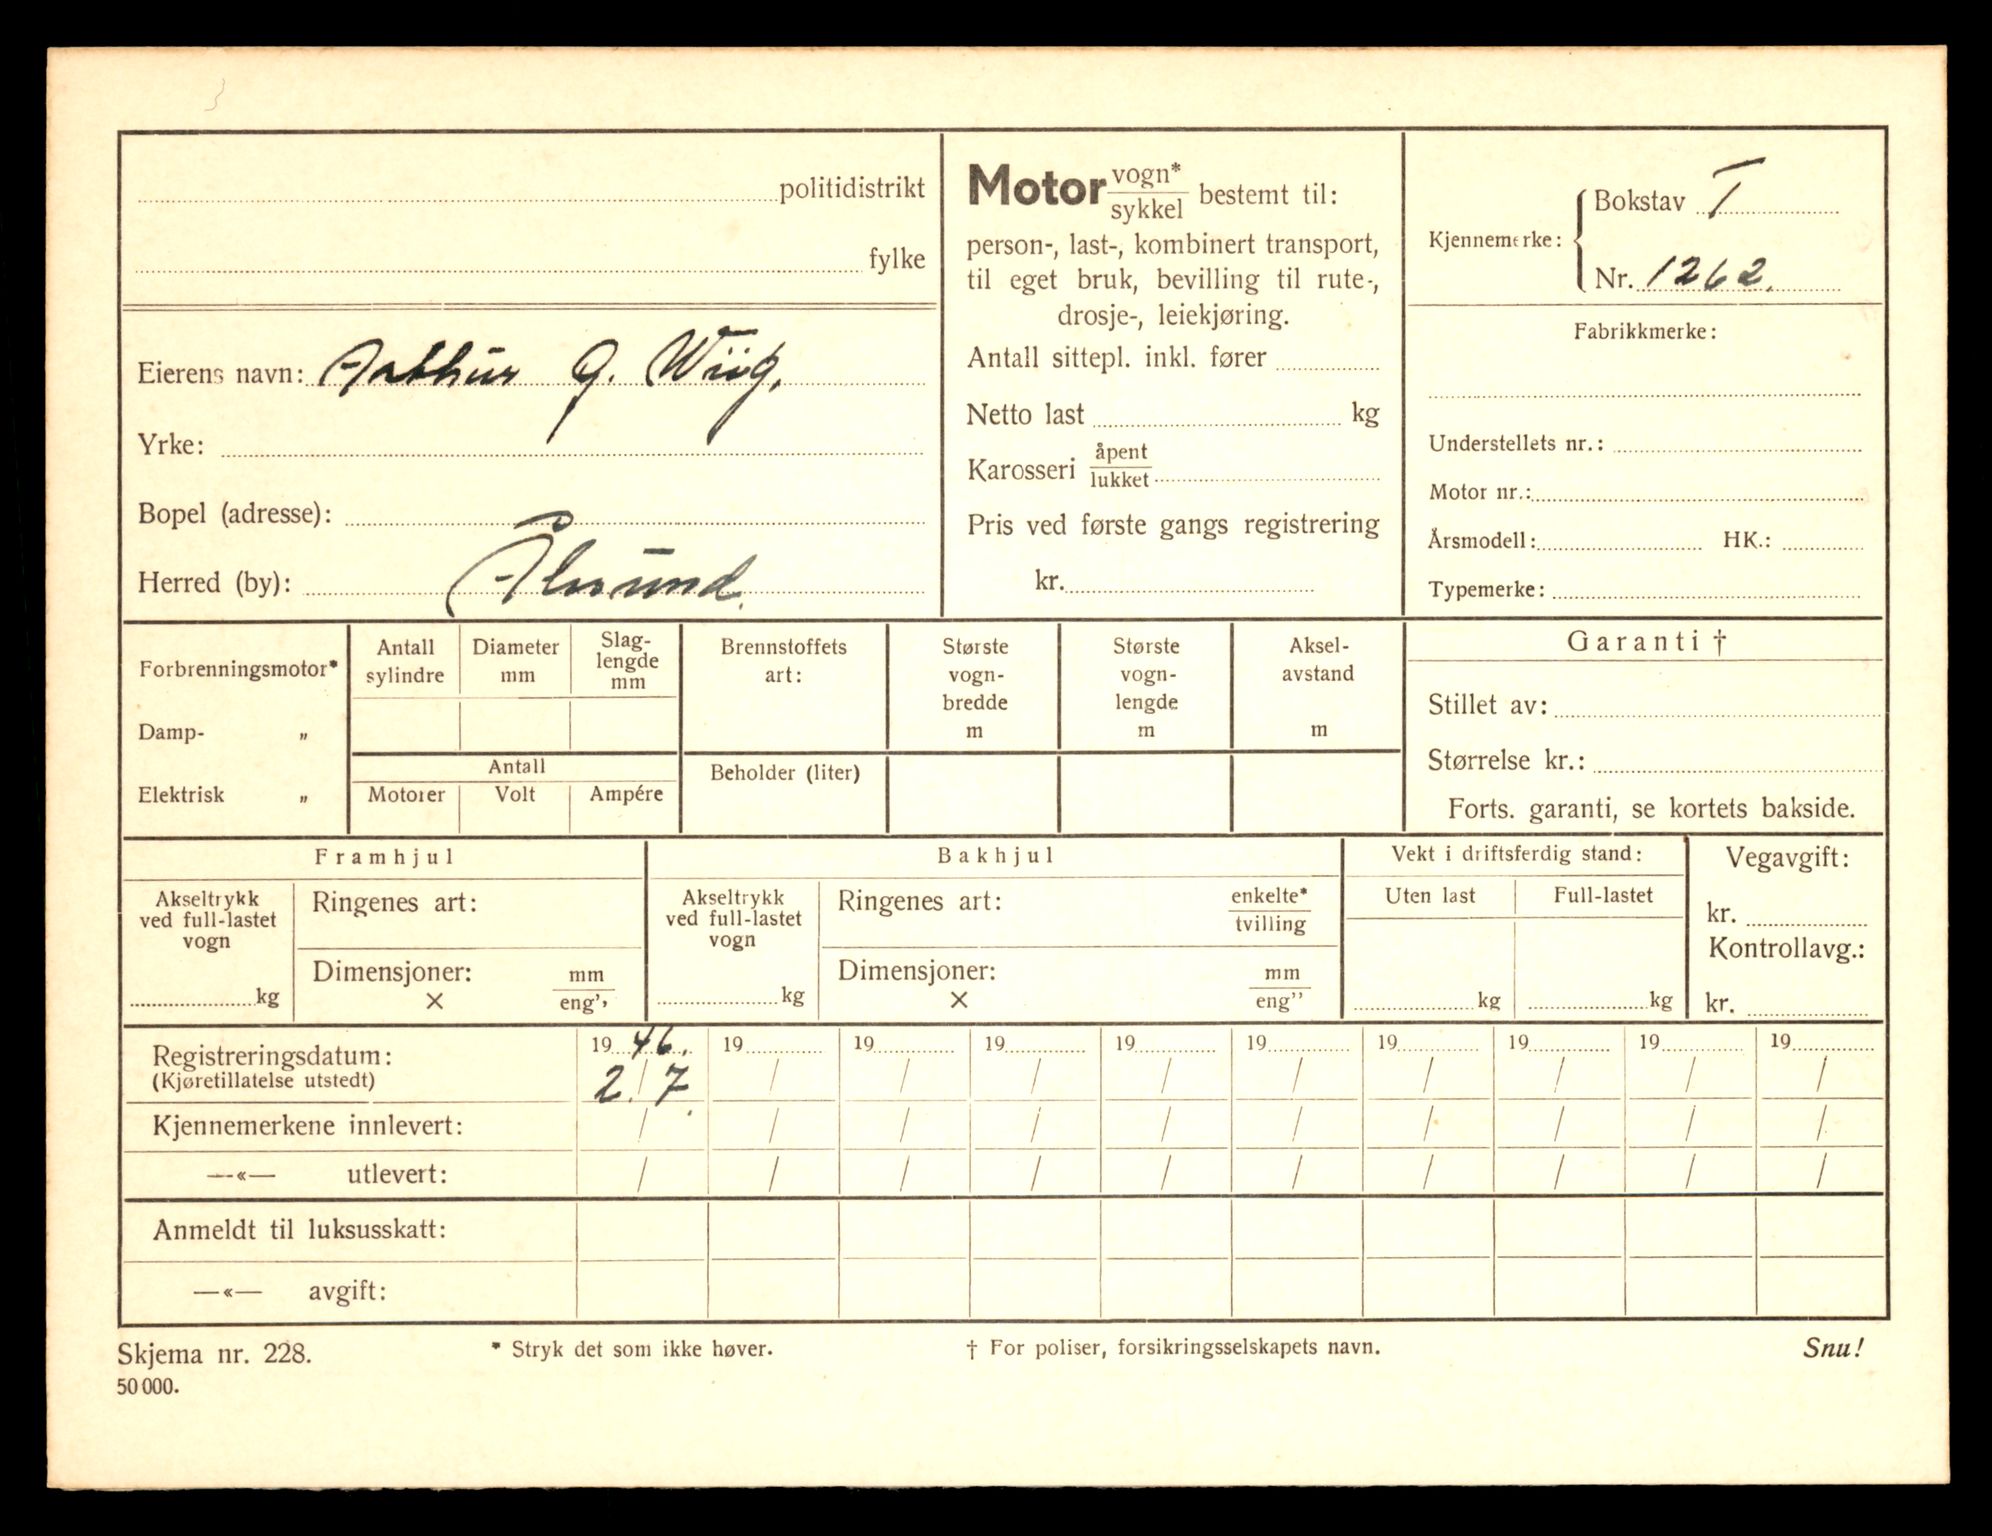 politidistrikt
fylke
Eierens navn: Arthur G. Wiig.
Yrke:
Bopel (adresse):
Herred (by): Ålesund.
Motor vogn* / sykkel bestemt til:
person-, last-, kombinert transport,
til eget bruk, bevilling til rute-,
drosje-, leiekjøring.
Antall sittepl. inkl. fører
Netto last kg
Karosseri åpent / lukket
Pris ved første gangs registrering
kr.
Kjennemerke: Bokstav T
Nr. 1262.
Fabrikkmerke:
Understellets nr.:
Motor nr.:
Årsmodell: HK.:
Typemerke:
Forbrenningsmotor*
Damp- „
Elektrisk „
Antall sylindre
Diameter mm
Slag-
lengde
mm
Antall
Motorer Volt Ampére
Brennstoffets
art:
Beholder (liter)
Største
vogn-
bredde
m
Største
vogn-
lengde
m
Aksel-
avstand
m
Garanti †
Stillet av:
Størrelse kr.:
Forts. garanti, se kortets bakside.
Framhjul
Akseltrykk
ved full-lastet
vogn
kg
Ringenes art:
Dimensjoner: mm
× eng''
Bakhjul
Akseltrykk
ved full-lastet
vogn
kg
Ringenes art: enkelte* / tvilling
Dimensjoner: mm
× eng''
Vekt i driftsferdig stand:
Uten last Full-lastet
kg kg
Vegavgift:
kr.
Kontrollavg.:
kr.
Registreringsdatum: 19 46. 19 19 19 19 19 19 19 19 19
(Kjøretillatelse utstedt) 2./7. / / / / / / / / /
Kjennemerkene innlevert: / / / / / / / / / /
—«— utlevert: / / / / / / / / / /
Anmeldt til luksusskatt:
—«— avgift:
Skjema nr. 228. * Stryk det som ikke høver. † For poliser, forsikringsselskapets navn. Snu!
50 000.